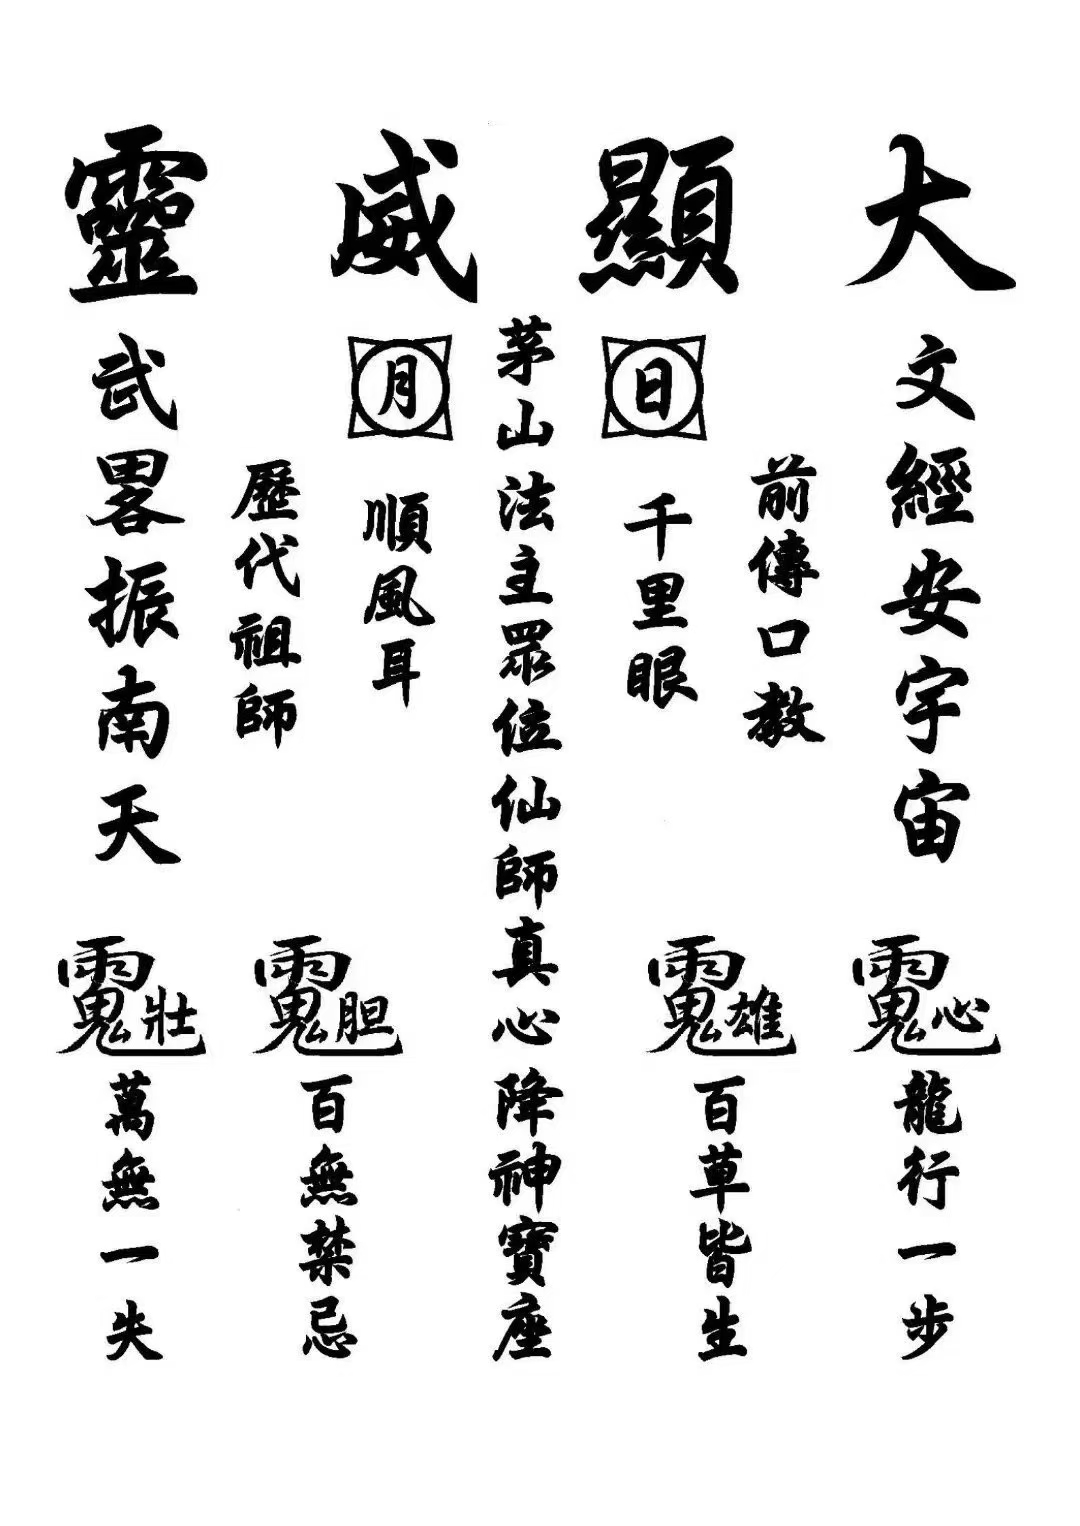 大顯威靈
文經安宇宙
前傳口教
日
千里眼
茅山法主眾位仙師真心降神寶座
月
順風耳
歷代祖師
武畧振南天
心
龍行一步
雄
百草皆生
胆
百無禁忌
壯
萬無一失